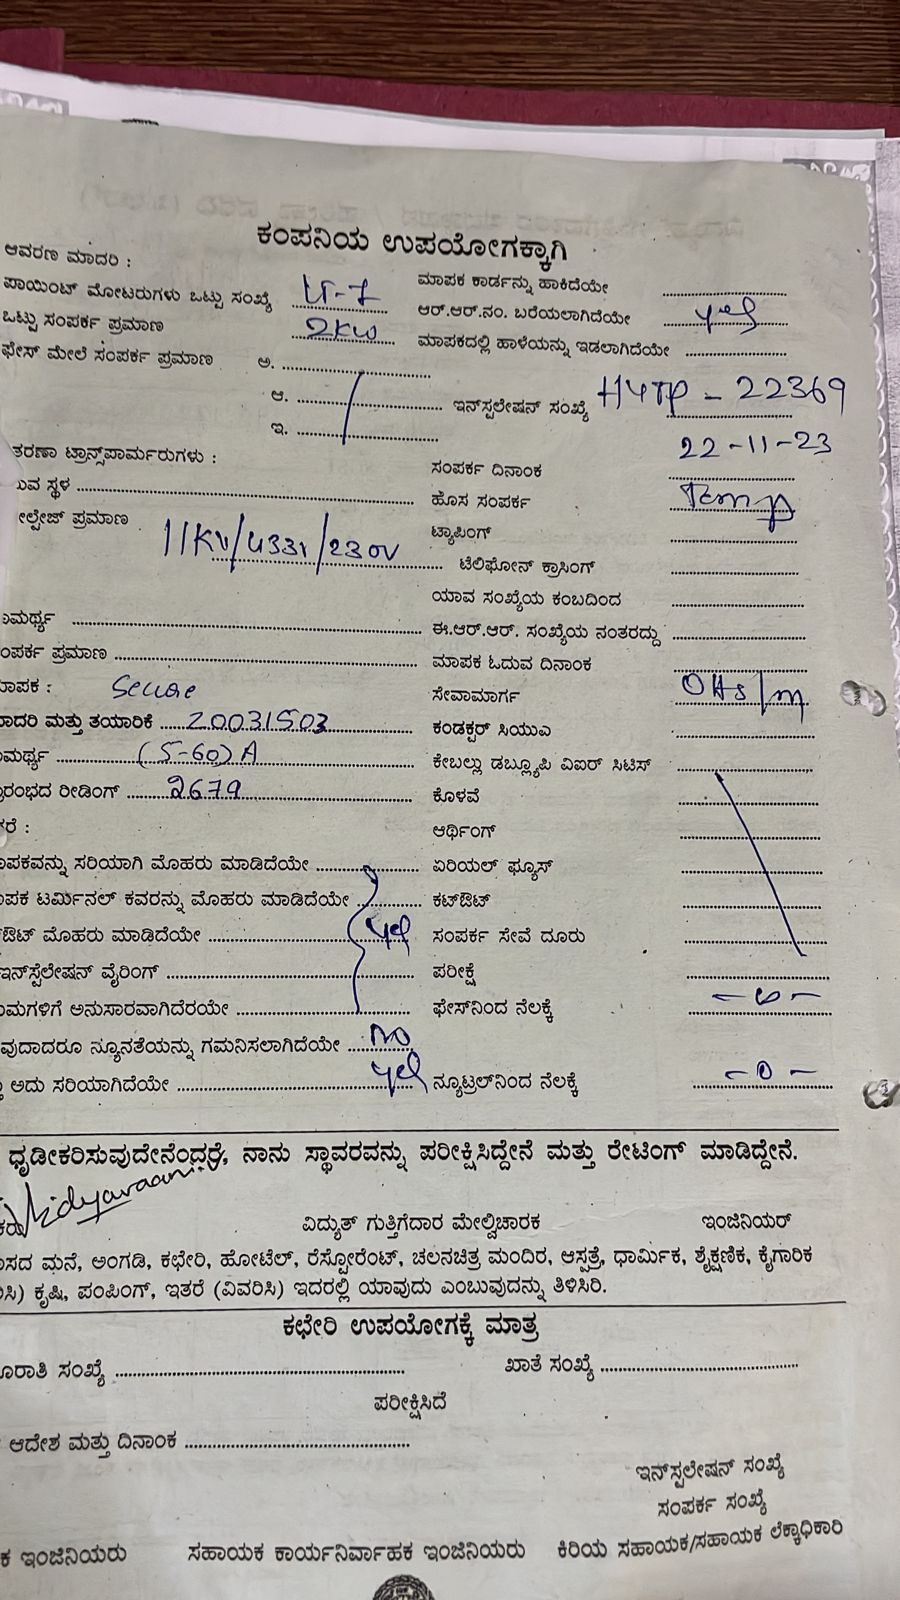 ಕಂಪನಿಯ ಉಪಯೋಗಕ್ಕಾಗಿ
ಆವರಣ ಮಾದರಿ :
ಪಾಯಿಂಟ್ ಮೋಟರುಗಳು ಒಟ್ಟು ಸಂಖ್ಯೆ LT-7 ಮಾಪಕ ಕಾರ್ಡನ್ನು ಹಾಕಿದೆಯೇ
ಒಟ್ಟು ಸಂಪರ್ಕ ಪ್ರಮಾಣ 2KW ಆರ್.ಆರ್.ನಂ. ಬರೆಯಲಾಗಿದೆಯೇ yes
ಫೇಸ್ ಮೇಲೆ ಸಂಪರ್ಕ ಪ್ರಮಾಣ ಅ. ಮಾಪಕದಲ್ಲಿ ಹಾಳೆಯನ್ನು ಇಡಲಾಗಿದೆಯೇ
ಆ. ಇನ್‌ಸ್ಪಲೇಷನ್ ಸಂಖ್ಯೆ H4TP - 22369
ಇ.
ತರಣಾ ಟ್ರಾನ್ಸ್‌ಪಾರ್ಮರುಗಳು : ಸಂಪರ್ಕ ದಿನಾಂಕ 22-11-23
ುವ ಸ್ಥಳ ಹೊಸ ಸಂಪರ್ಕ Temp
ೋಲ್ಟೇಜ್ ಪ್ರಮಾಣ 11KV/433V/230V ಟ್ಯಾಪಿಂಗ್
ಟೆಲಿಫೋನ್ ಕ್ರಾಸಿಂಗ್
ಯಾವ ಸಂಖ್ಯೆಯ ಕಂಬದಿಂದ
ಾಮರ್ಥ್ಯ ಈ.ಆರ್.ಆರ್. ಸಂಖ್ಯೆಯ ನಂತರದ್ದು
ಂಪರ್ಕ ಪ್ರಮಾಣ ಮಾಪಕ ಓದುವ ದಿನಾಂಕ
ಾಪಕ : Secure ಸೇವಾಮಾರ್ಗ OHS/m
ಾದರಿ ಮತ್ತು ತಯಾರಿಕೆ 20031503 ಕಂಡಕ್ಟರ್ ಸಿಯುಎ
ಾಮರ್ಥ್ಯ (5-60)A ಕೇಬಲ್ಲು ಡಬ್ಲ್ಯೂಪಿ ವಿಐರ್ ಸಿಟಿಸ್
ಾರಂಭದ ರೀಡಿಂಗ್ 2679 ಕೊಳವೆ
ತರೆ : ಆರ್ಥಿಂಗ್
ಾಪಕವನ್ನು ಸರಿಯಾಗಿ ಮೊಹರು ಮಾಡಿದೆಯೇ ಏರಿಯಲ್ ಫ್ಯೂಸ್
ಾಪಕ ಟರ್ಮಿನಲ್ ಕವರನ್ನು ಮೊಹರು ಮಾಡಿದೆಯೇ ಕಟ್‌ಔಟ್
್‌ಔಟ್ ಮೊಹರು ಮಾಡಿದೆಯೇ yes ಸಂಪರ್ಕ ಸೇವೆ ದೂರು
ಇನ್‌ಸ್ಪೆಲೇಷನ್ ವೈರಿಂಗ್ ಪರೀಕ್ಷೆ
ಯಮಗಳಿಗೆ ಅನುಸಾರವಾಗಿದೆರಯೇ ಫೇಸ್‌ನಿಂದ ನೆಲಕ್ಕೆ - 0 -
ವುದಾದರೂ ನ್ಯೂನತೆಯನ್ನು ಗಮನಿಸಲಾಗಿದೆಯೇ No
ತ್ತು ಅದು ಸರಿಯಾಗಿದೆಯೇ yes ನ್ಯೂಟ್ರಲ್‌ನಿಂದ ನೆಲಕ್ಕೆ - 0 -
ಧೃಡೀಕರಿಸುವುದೇನೆಂದ್ರರೆ, ನಾನು ಸ್ಥಾವರವನ್ನು ಪರೀಕ್ಷಿಸಿದ್ದೇನೆ ಮತ್ತು ರೇಟಿಂಗ್ ಮಾಡಿದ್ದೇನೆ.
ವಿದ್ಯುತ್ ಗುತ್ತಿಗೆದಾರ ಮೇಲ್ವಿಚಾರಕ ಇಂಜಿನಿಯರ್
ಾಸದ ಮನೆ, ಅಂಗಡಿ, ಕಛೇರಿ, ಹೋಟೆಲ್, ರೆಸ್ಟೋರೆಂಟ್, ಚಲನಚಿತ್ರ ಮಂದಿರ, ಆಸ್ಪತ್ರೆ, ಧಾರ್ಮಿಕ, ಶೈಕ್ಷಣಿಕ, ಕೈಗಾರಿಕ
ಿಸಿ) ಕೃಷಿ, ಪಂಪಿಂಗ್, ಇತರೆ (ವಿವರಿಸಿ) ಇದರಲ್ಲಿ ಯಾವುದು ಎಂಬುವುದನ್ನು ತಿಳಿಸಿರಿ.
ಕಛೇರಿ ಉಪಯೋಗಕ್ಕೆ ಮಾತ್ರ
ೂರಾತಿ ಸಂಖ್ಯೆ ಖಾತೆ ಸಂಖ್ಯೆ
ಪರೀಕ್ಷಿಸಿದೆ
ಆದೇಶ ಮತ್ತು ದಿನಾಂಕ
ಇನ್‌ಸ್ಪಲೇಷನ್ ಸಂಖ್ಯೆ
ಸಂಪರ್ಕ ಸಂಖ್ಯೆ
ಕ ಇಂಜಿನಿಯರು ಸಹಾಯಕ ಕಾರ್ಯನಿರ್ವಾಹಕ ಇಂಜಿನಿಯರು ಕಿರಿಯ ಸಹಾಯಕ/ಸಹಾಯಕ ಲೆಕ್ಕಾಧಿಕಾರಿ